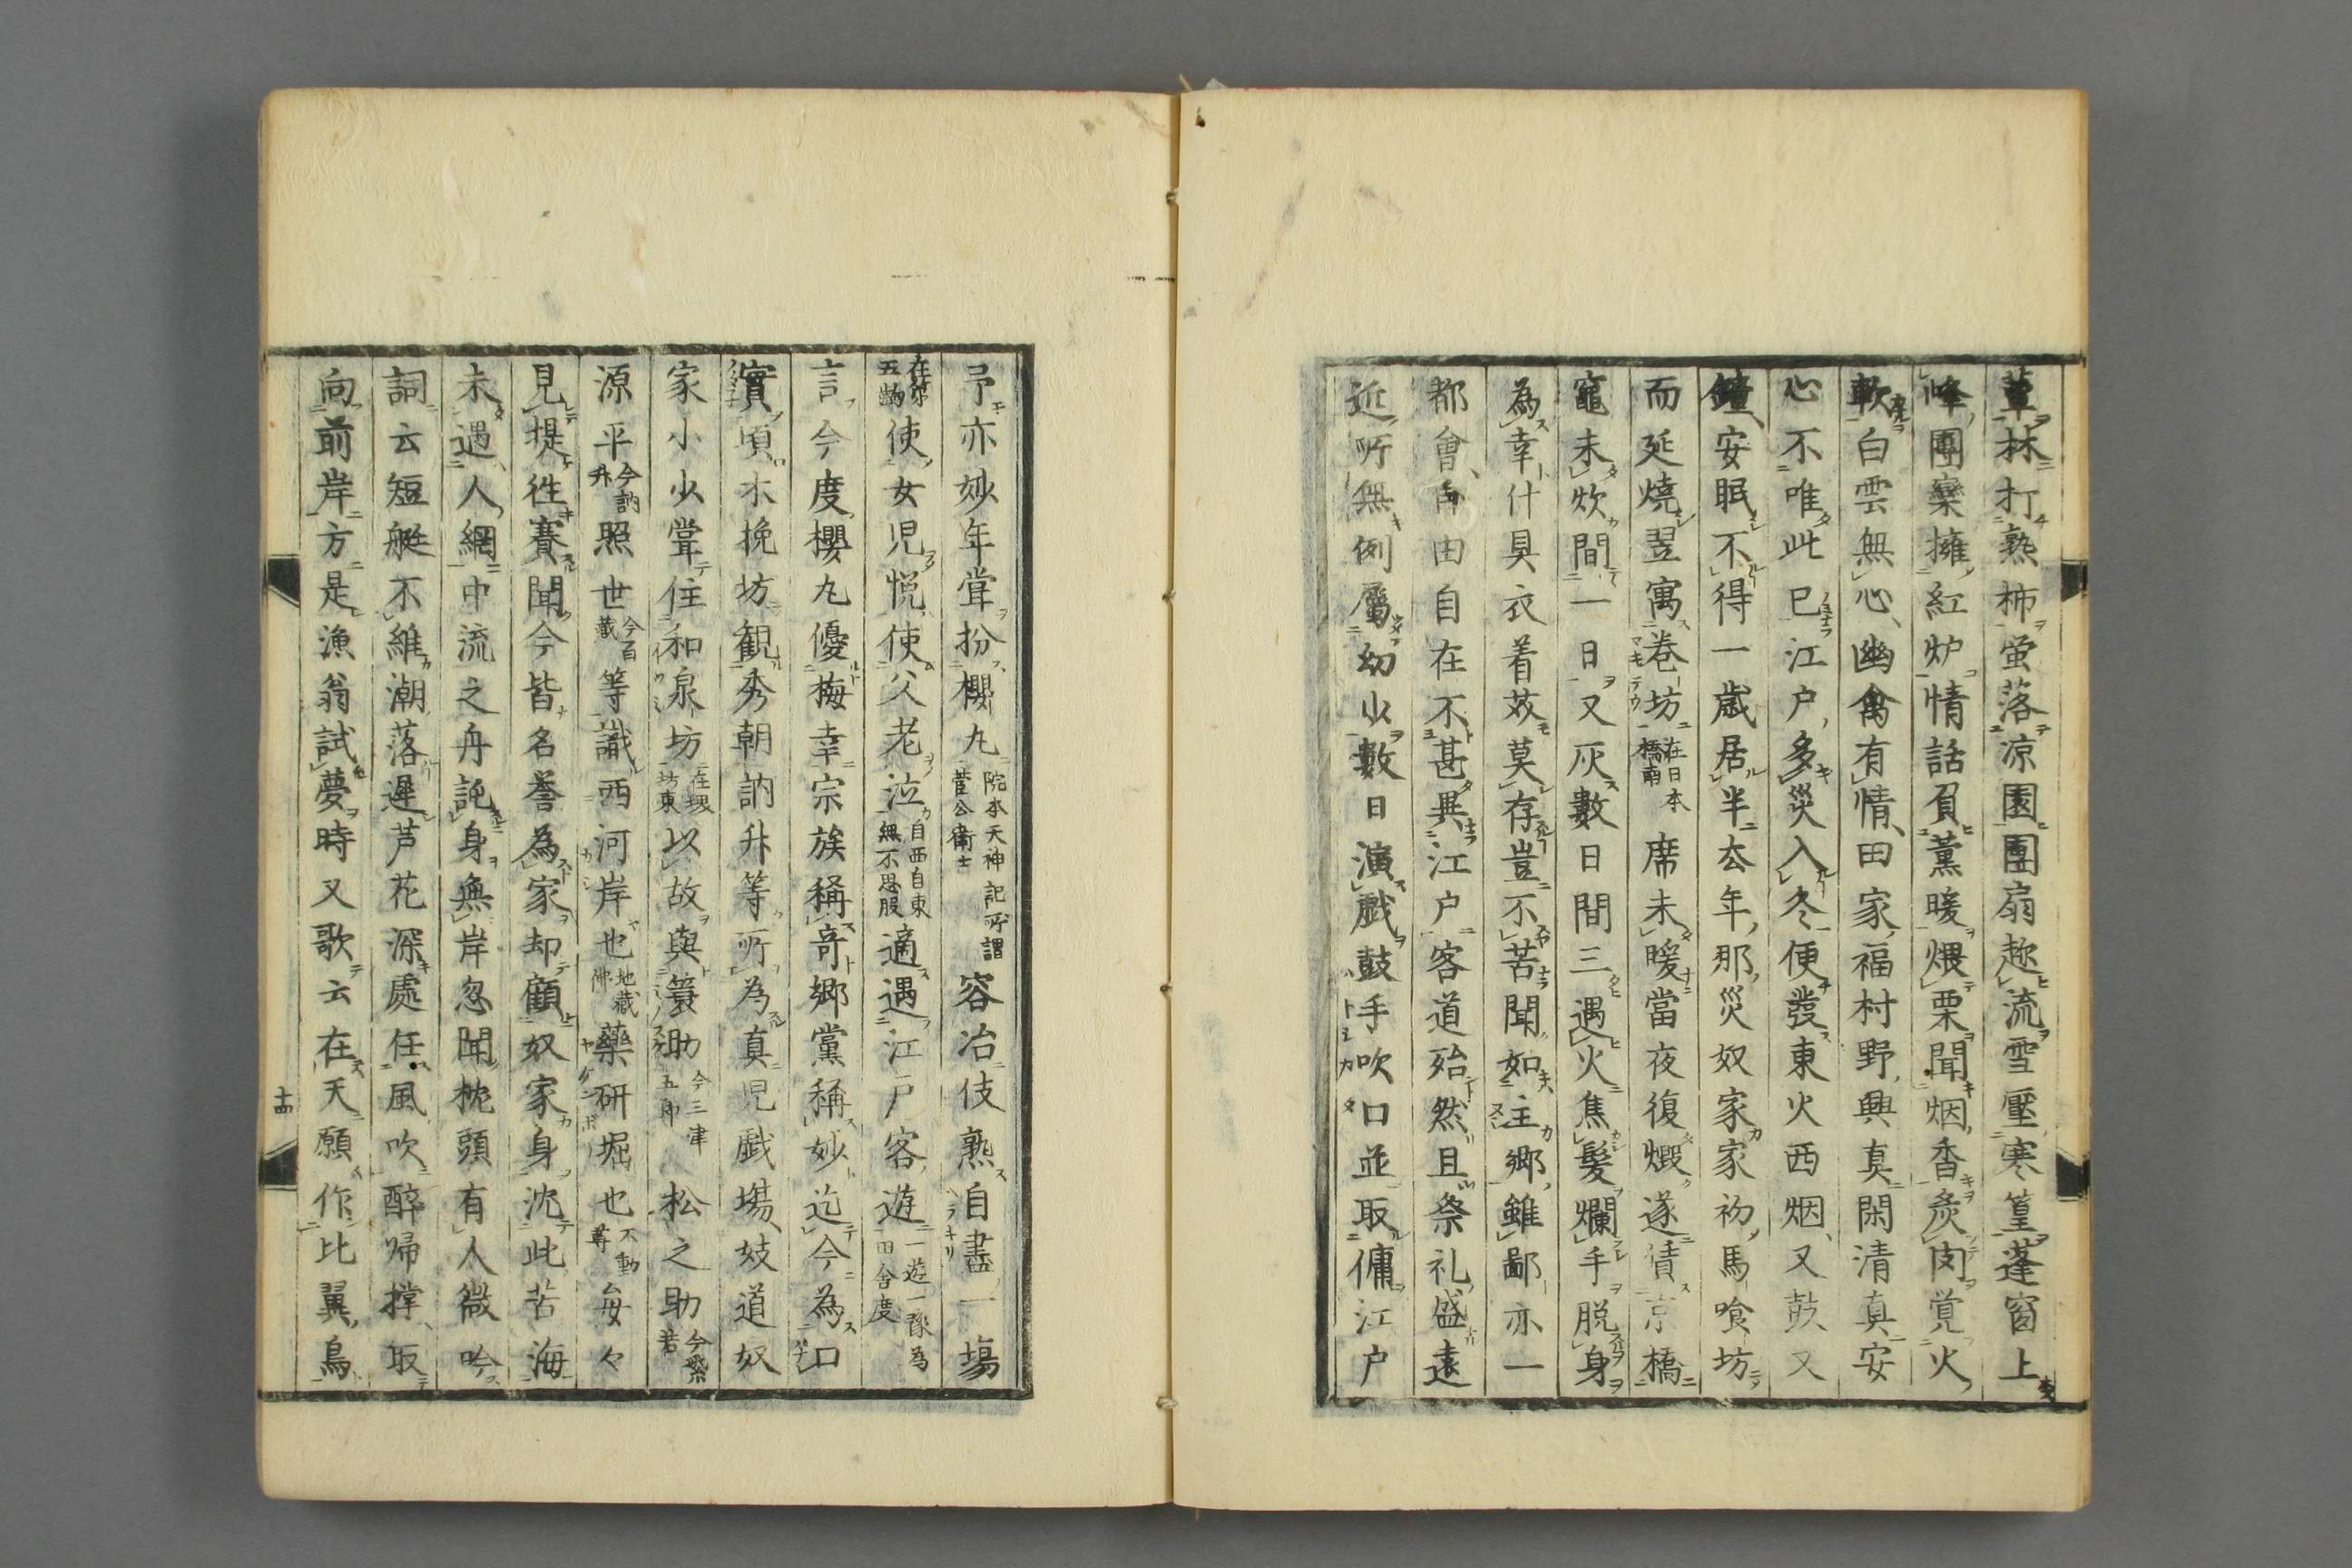 蕈林打熟柿蛍落凉園團扇趂流雪壓寒篁蓬窗上
峰團欒擁紅炉情話負薫暖煨栗聞烟香炙肉覚火
軟白雲無心幽禽有情田家福村野興真閑清真安
心不唯此巳江户多災入冬便發東火西烟又鼓又
鐘安眠不得一歳居半厺年那災奴家家初馬喰坊
而延燒翌寓巻坊在日本橋南席未暖當夜復燬遂僨京橋
竈未炊間一日又灰數日間三遇火焦髮爛手脱身
為幸什具衣着莈莫存豈不苦聞如主郷雖鄙亦一
都會自由自在不甚異江户客道殆然且祭礼盛遠
近所無例屬幼少數日演戯鼓手吹口並取傭江户
予亦妙年甞扮櫻丸院本天神記所謂菅公衛士容冶伎熟自盡一場
在第五齣使女児悦使父老泣自西自東無不思服適遇江戸客遊一遊一豫為田舎度
言今度櫻丸優梅幸宗族稱竒郷黨稱妙迄今為口
實頃不挽坊観秀朝訥升等所為真児戯場妓道奴
家小少甞住和泉坊在堺坊東以故與簔助今三津五郎松之助今紫若
源平今訥升照世今百蔵等識西河岸也地蔵佛薬研堀也不動尊毎々
見提徃賽聞今皆名誉為家却顧奴家身沈此苦海
未遇人網中流之舟託身無岸忽聞枕頭有人微吟
詞云短艇不維潮落遅芦花深處任風吹醉帰撑取
向前岸方是漁翁試夢時又歌云在天願作比翼鳥
十四